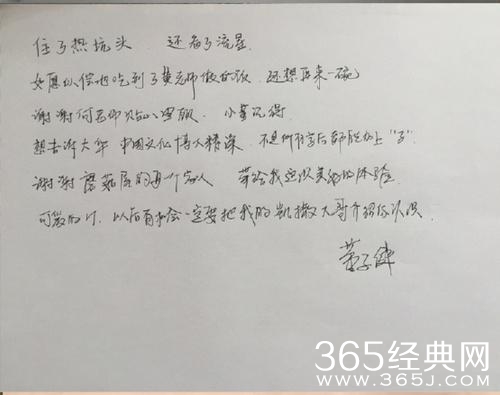 住了热炕头 还看了流星
如愿以偿地吃到了黄老师做的饭 还想再来一碗
谢谢何老师贴心 小董记得
想告诉大华 中国文化博大精深 不是所有字后都能加上“子”
谢谢蘑菇屋的每个家人 带给我这次美好的体验
可爱的H，以后有机会一定要把我的凯撒大哥介绍你认识
董子健
365经典网
www.365J.com